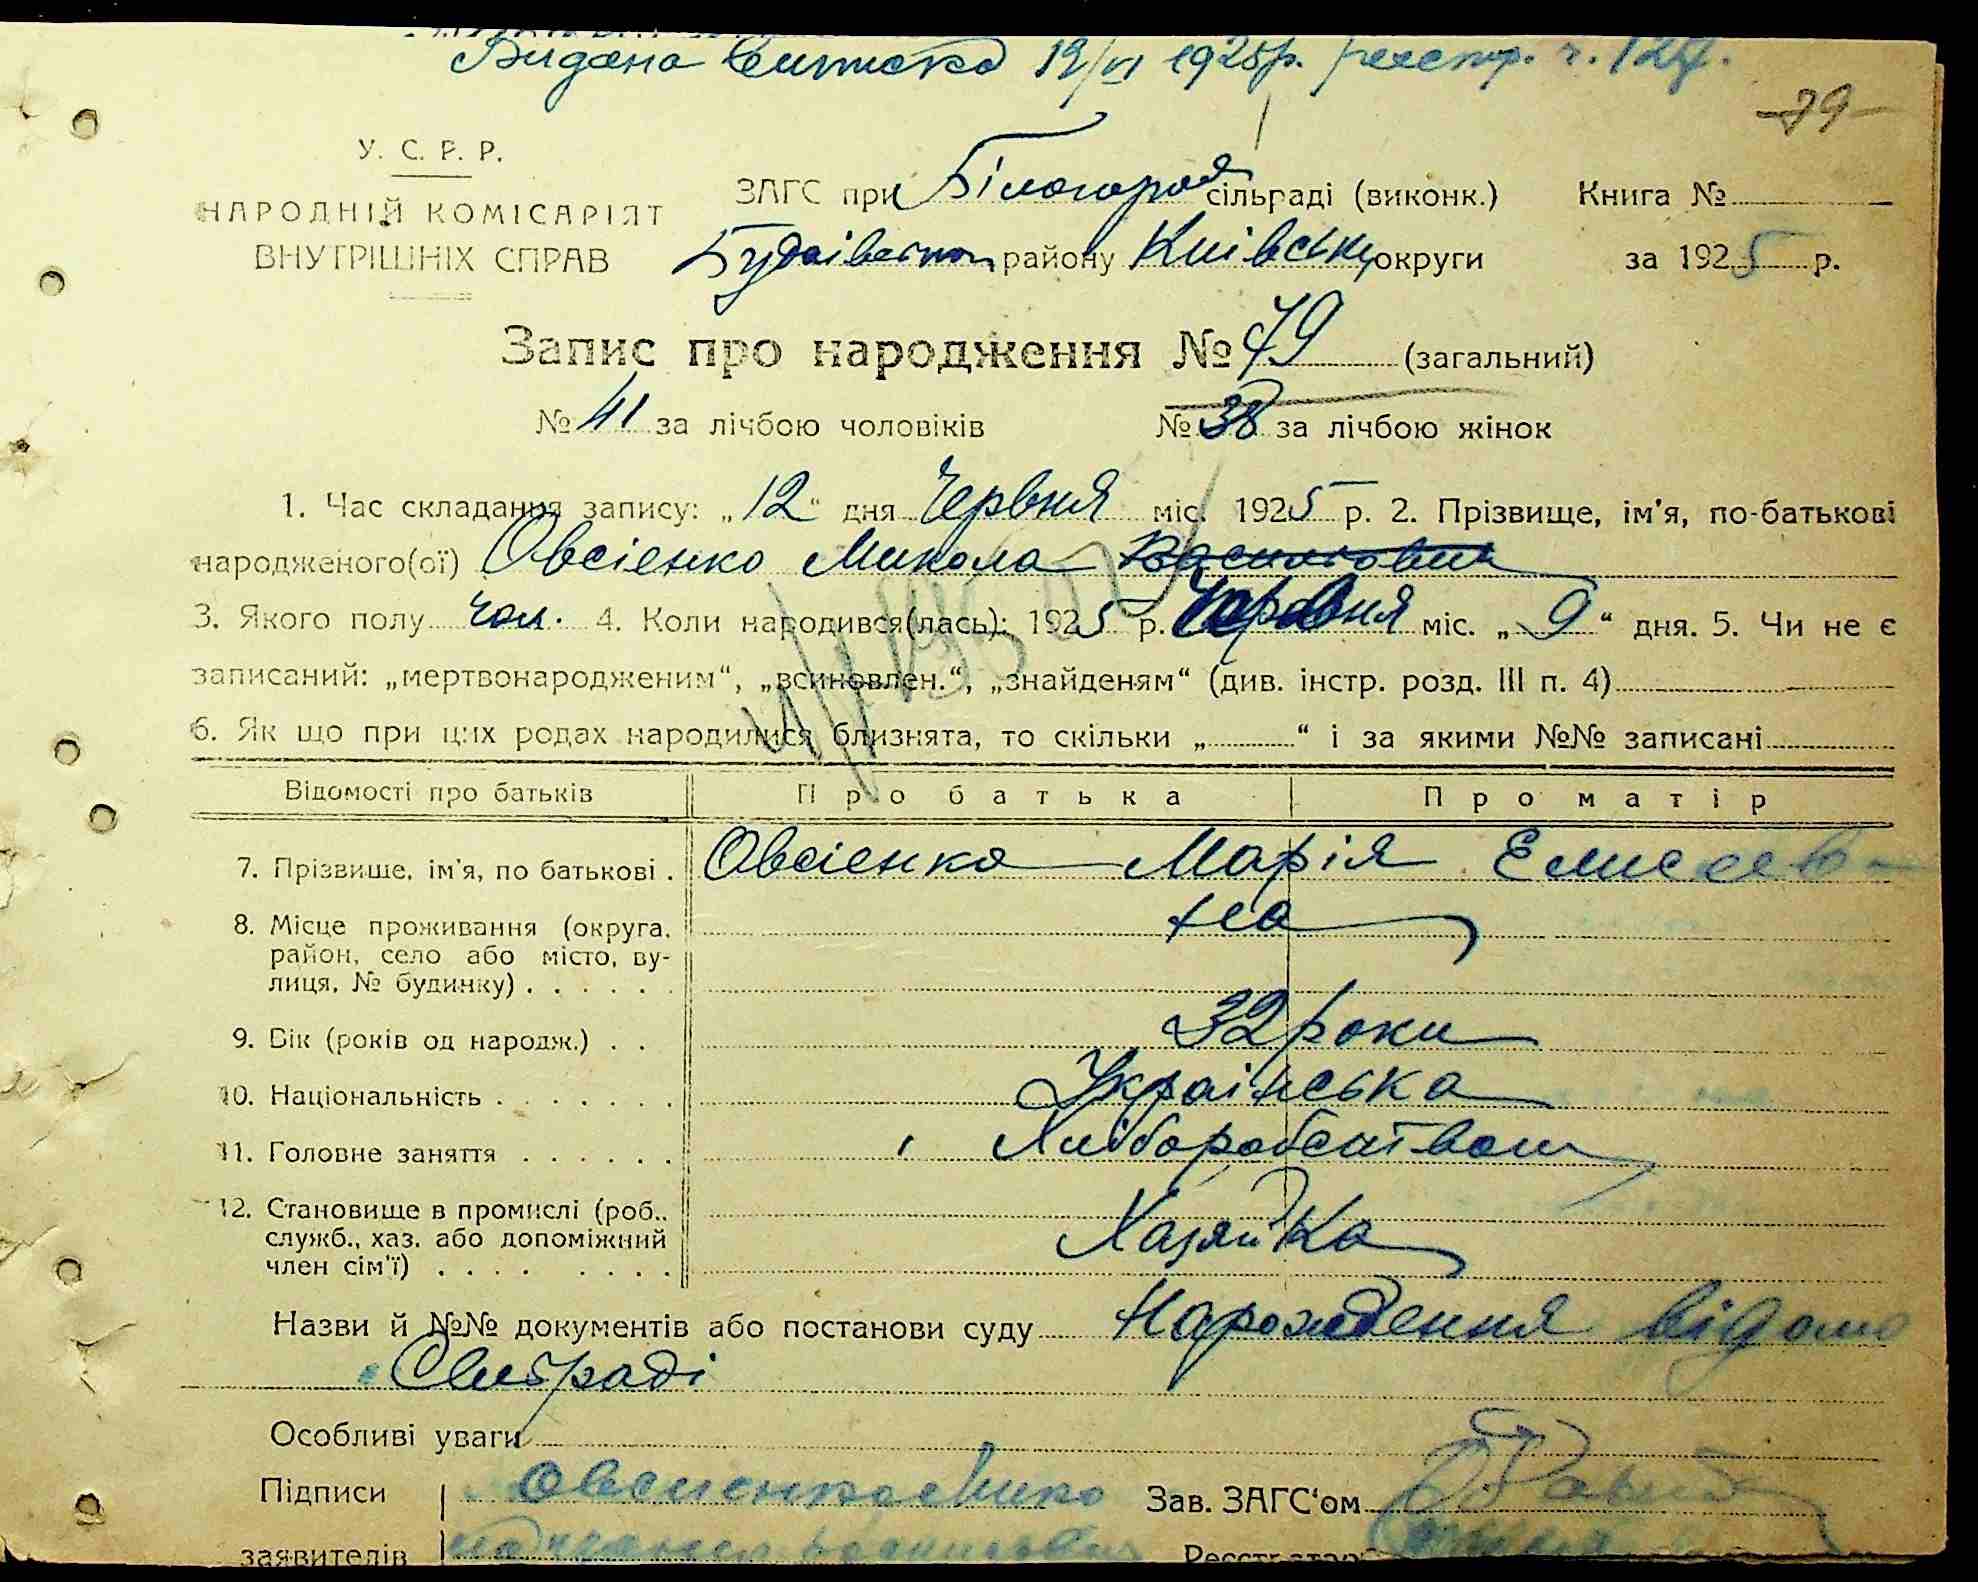 Видана виписка 12/VI 1925р. реєстр. ч. 127.
79
У. С. Р. Р.
НАРОДНІЙ КОМІСАРІЯТ
ВНУТРІШНІХ СПРАВ
ЗАГС при Білогород сільраді (виконк.) Книга №
Будаівском району Київськ округи за 1925 р.
Запис про народження № 79 (загальний)
№ 41 за лічбою чоловіків № 38 за лічбою жінок
1. Час складання запису: „12“ дня Червня міс. 1925 р. 2. Прізвище, ім'я, по-батькові
народженого(ої) Овсієнко Микола Василювич
3. Якого полу чол. 4. Коли народився(лась): 1925 р. Червня міс. „9“ дня. 5. Чи не є
записаний: „мертвонародженим“, „всиновлен.“, „знайденям“ (див. інстр. розд. III п. 4)
6. Як що при цих родах народилися близнята, то скільки „ “ і за якими №№ записані
Відомості про батьків Про батька Про матір
7. Прізвище, ім'я, по батькові . Овсієнко Марія Елисеев-
на
8. Місце проживання (округа,
район, село або місто, ву-
лиця, № будинку) . . . . . .
9. Вік (років од народж.) . . 32 роки
10. Національність . . . . . . . Українська
11. Головне заняття . . . . . . Хліборобством
12. Становище в промислі (роб.,
служб., хаз. або допоміжний
член сім'ї) . . . . . . . . Хазяйка
Назви й №№ документів або постанови суду Нарождення відомо
Сільраді
Особливі уваги
Підписи Овсиенко Зав. ЗАГС'ом
заявителів Реєстратор